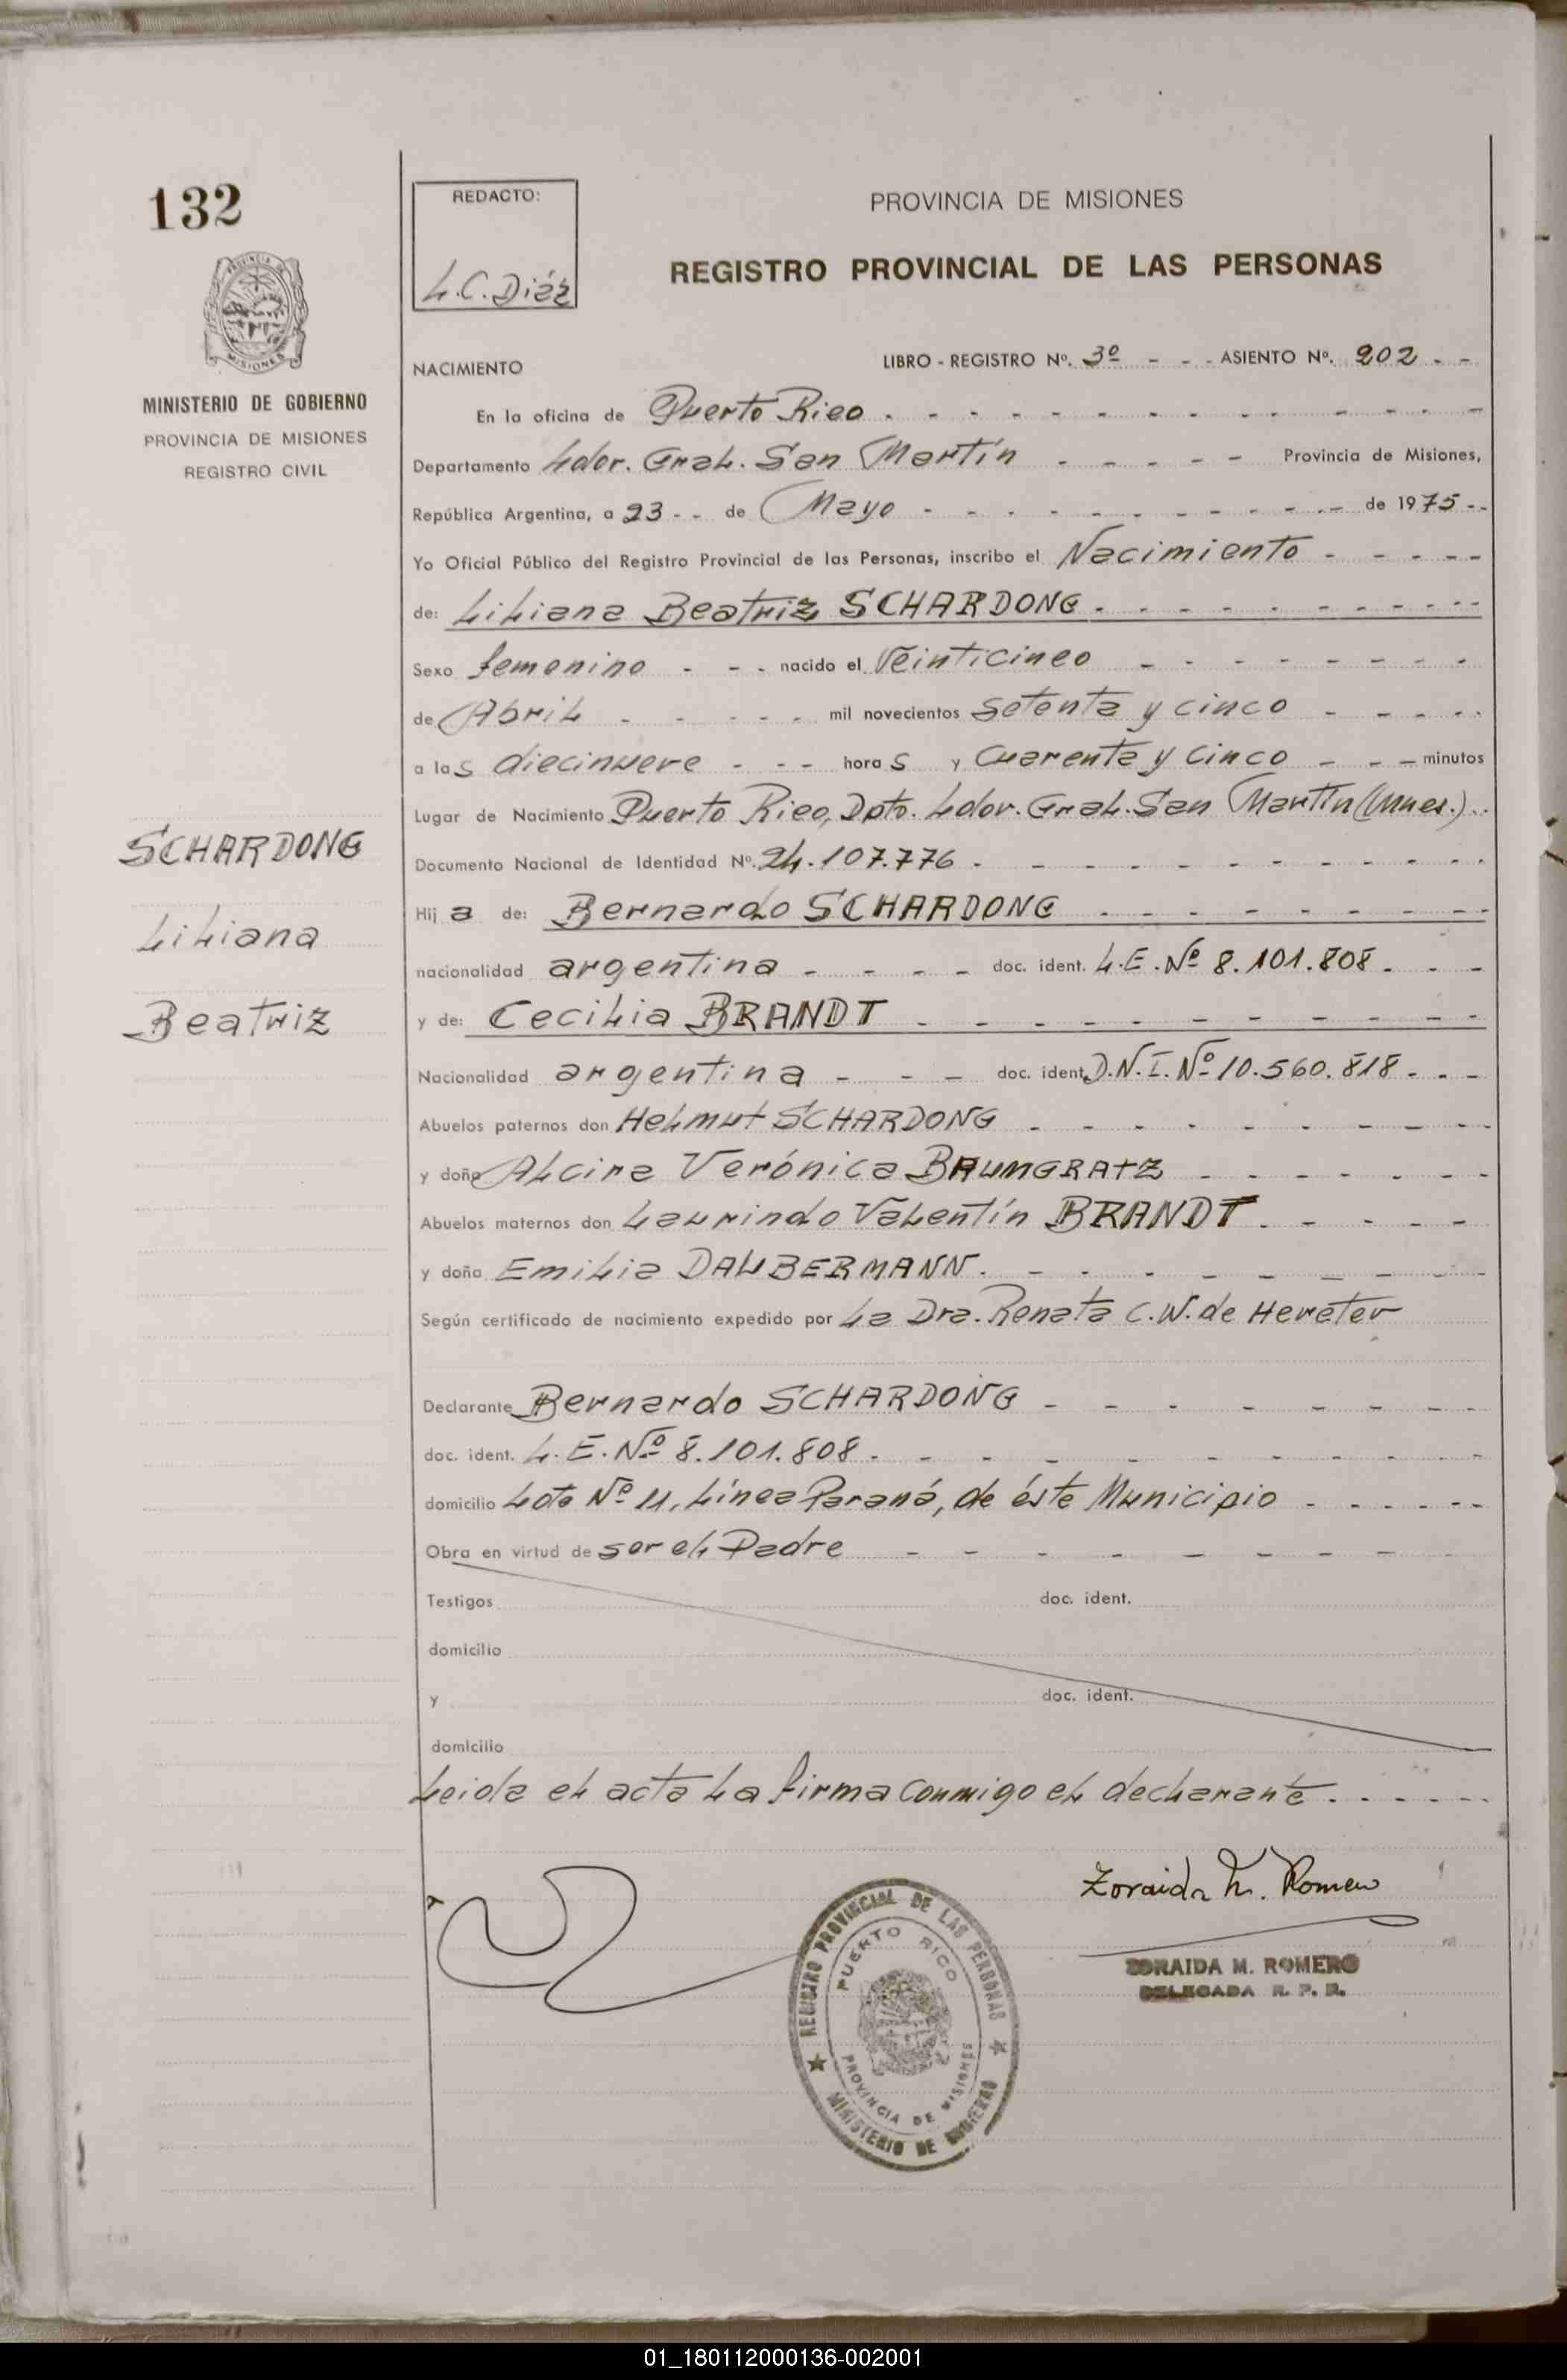 132
PROVINCIA DE MISIONES
MINISTERIO DE GOBIERNO
PROVINCIA DE MISIONES
REGISTRO CIVIL
SCHARDONG
Liliana
Beatriz
REDACTO:
L.C. Diéz
PROVINCIA DE MISIONES
REGISTRO PROVINCIAL DE LAS PERSONAS
NACIMIENTO
LIBRO - REGISTRO Nº. 3º - - - ASIENTO Nº. 202 - -
En la oficina de Puerto Rico
Departamento Ldor. Gral. San Martín - - - - - Provincia de Misiones,
República Argentina, a 23 - - de Mayo - - - de 1975 - -
Yo Oficial Público del Registro Provincial de las Personas, inscribo el Nacimiento
de: Liliana Beatriz SCHARDONG
Sexo femenino - - - nacido el Veinticinco
de Abril - - - - - mil novecientos setenta y cinco
a las diecinueve - - - horas y Cuarenta y Cinco - - - minutos
Lugar de Nacimiento Puerto Rico, Dpto. Ldor. Gral. San Martín (Mnes.)
Documento Nacional de Identidad Nº. 24.107.776
Hija de: Bernardo SCHARDONG
nacionalidad argentina - - - - doc. ident. L.E. Nº 8.101.808
y de: Cecilia BRANDT
Nacionalidad argentina - - - doc. ident. D.N.I. Nº 10.560.818
Abuelos paternos don Helmut SCHARDONG
y doña Alcira Verónica BAUMGRATZ
Abuelos maternos don Laurindo Valentín BRANDT
y doña Emilia DAUBERMANN
Según certificado de nacimiento expedido por La Dra. Renata C.W. de Hereter
Declarante Bernardo SCHARDONG
doc. ident. L.E. Nº 8.101.808
domicilio Lote Nº 11, Línea Paraná, de éste Municipio
Obra en virtud de ser el Padre
Testigos doc. ident.
domicilio
y doc. ident.
domicilio
Leida el acta la firma conmigo el declarante
Zoraida M. Romero
ZORAIDA M. ROMERO
DELEGADA R. P. P.
REGISTRO PROVINCIAL DE LAS PERSONAS
PUERTO RICO
PROVINCIA DE MISIONES
MINISTERIO DE GOBIERNO
01_180112000136-002001